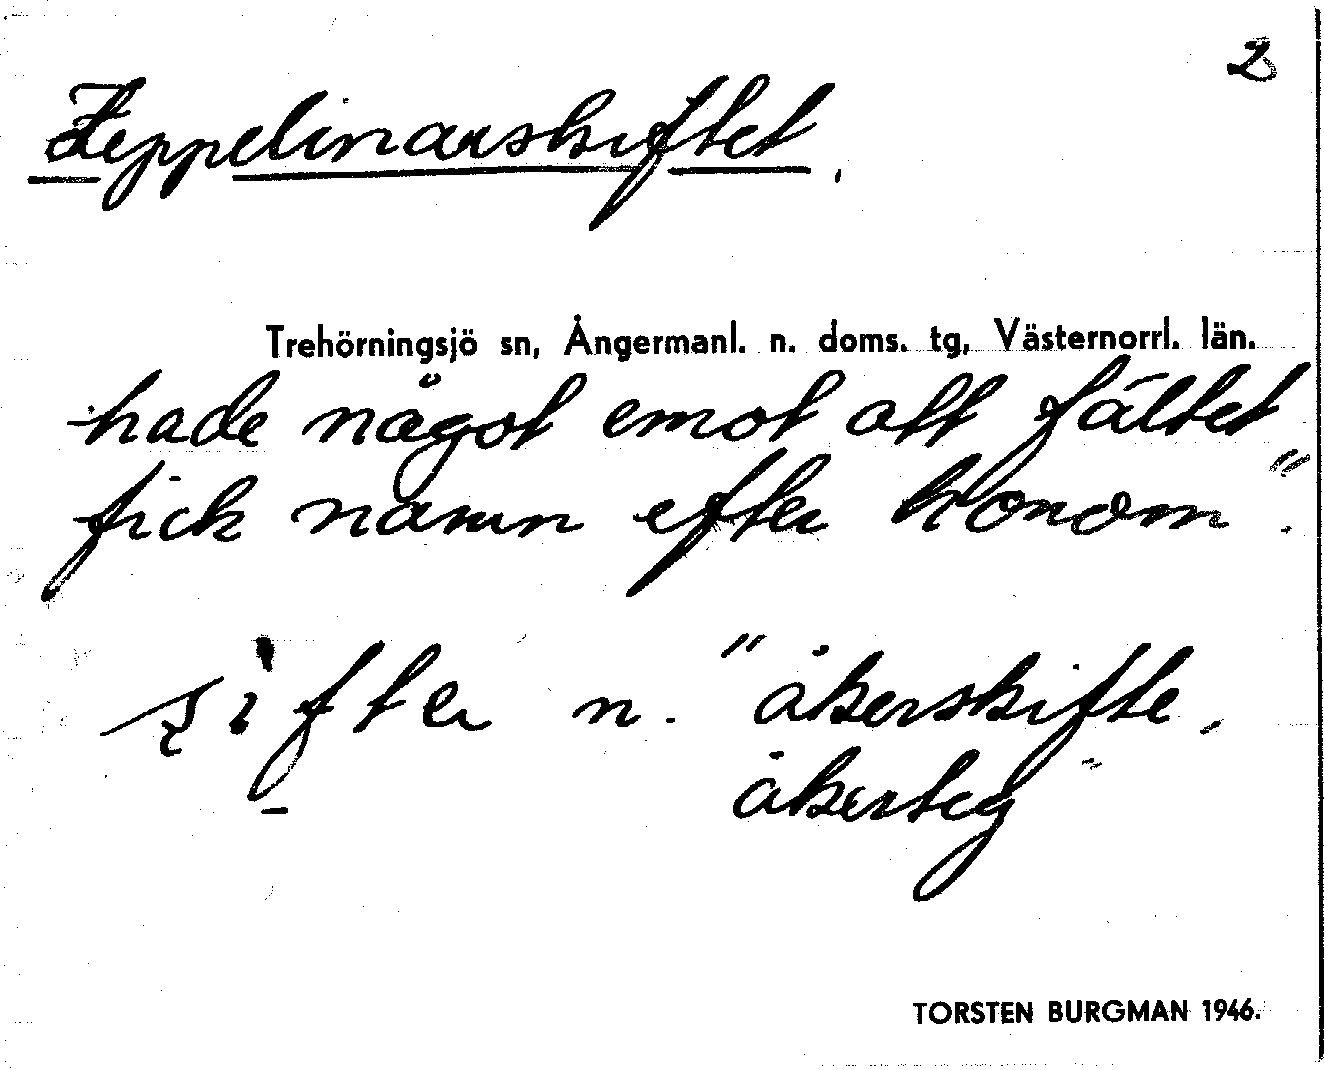 2
Zeppelinarskiftet.
Trehörningsjö sn, Ångermanl. n. doms. tg, Västernorrl. län.
hade något emot att fältet
fick namn efter honom".
n. "åkerskifte,
åkerteg"
TORSTEN BURGMAN 1946.